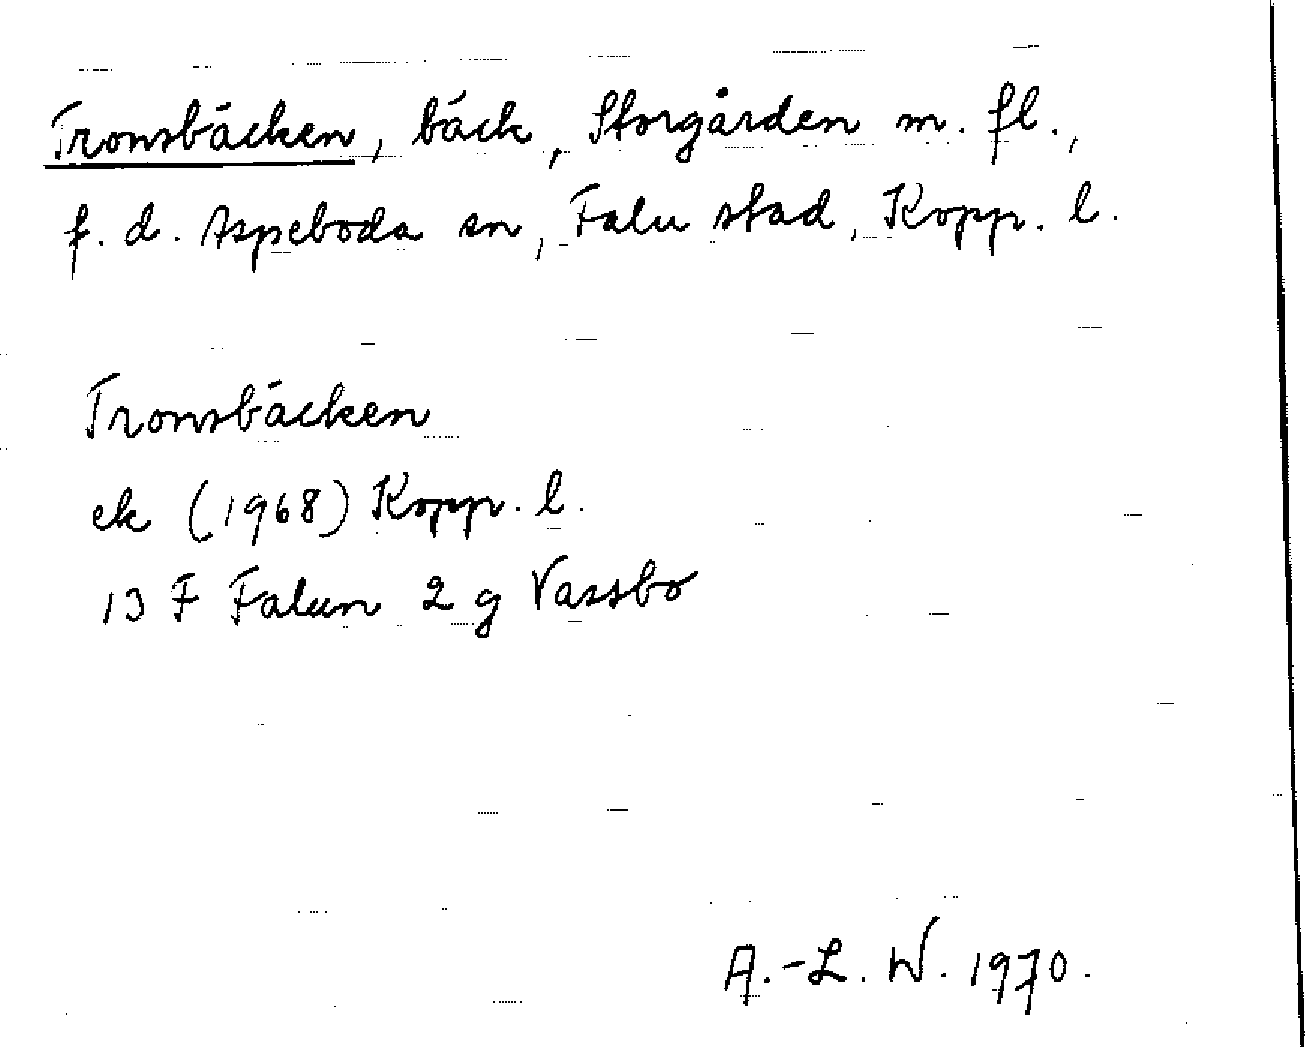 Tronsbäcken, bäck, Storgården m. fl.,
f. d. Aspeboda sn, Falu stad, Kopp. l.
Tronsbäcken
ek (1968) Kopp. l.
13 F Falun 2 g Vassbo
A.-L. W. 1970.